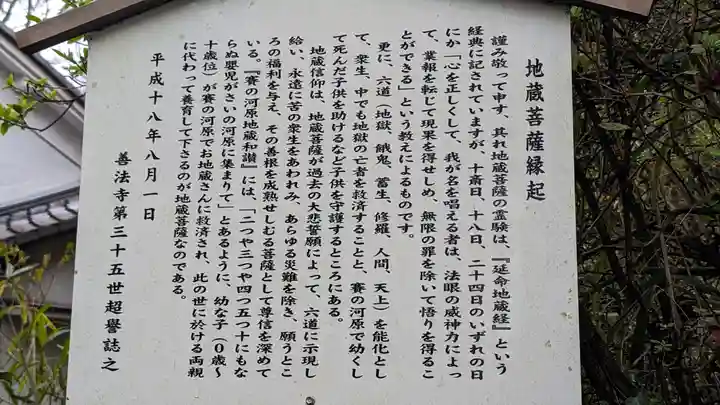 地蔵菩薩縁起
謹み敬って申す、其れ地蔵菩薩の霊験は、『延命地蔵経』という
経典に記されていますが、十斎日、十八日、二十四日のいずれの日
にか「心を正しくして、我が名を唱える者は、法眼の威神力によっ
て、業報を転じて現果を得せしめ、無限の罪を除いて悟りを得るこ
とができる」という教えによるものです。
更に、六道（地獄、餓鬼、畜生、修羅、人間、天上）を能化とし
て、衆生、中でも地獄の亡者を救済することと、賽の河原で幼くし
て死んだ子供を助けるなど子供を守護するところにある。
地蔵信仰は、地蔵菩薩が過去の大悲誓願によって、六道に示現し
給い、永遠に苦の衆生をあわれみ、あらゆる災難を除き、願うとこ
ろの福利を与え、その善根を成熟せしむる菩薩として尊信を深めて
いる。『賽の河原地蔵和讃』には、「二つや三つや四つ五つ十にもな
らぬ嬰児がさいの河原に集まりて」とあるように、幼な子（０歳〜
十歳位）が賽の河原でお地蔵さんに救済され、此の世に於ける両親
に代わって養育して下さるのが地蔵菩薩なのである。
平成十八年八月一日
善法寺第三十五世超誉誌之